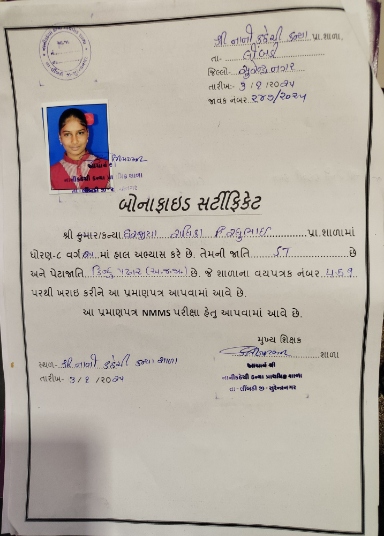 શ્રી નાની કઠેચી કન્યા પ્રા.શાળા
તા- લીંબડી
જિલ્લો- સુરેન્દ્રનગર
તારીખ- ૩/૧/૨૦૨૫
જાવક નંબર ૨૪૭/૨૦૨૫
આચાર્ય શ્રી
નાનીકઠેચી કન્યા પ્રાથમિક શાળા
તા- લીંબડી જી- સુરેન્દ્રનગર
બોનાફાઇડ સર્ટીફિકેટ
શ્રી કુમાર/કન્યા પ્રા.શાળામાં
ધોરણ-૮ વર્ગ માં હાલ અભ્યાસ કરે છે. તેમની જાતિ ST છે
અને પેટાજાતિ હિન્દુ પઢાર (અ.જ.જા) છે. જે શાળાના વયપત્રક નંબર ૫૬૧
પરથી ખરાઇ કરીને આ પ્રમાણપત્ર આપવામાં આવે છે.
આ પ્રમાણપત્ર NMMS પરીક્ષા હેતુ આપવામાં આવે છે.
મુખ્ય શિક્ષક
સ્થળ- શ્રી.નાની કઠેચી કન્યા શાળા
શાળા
તારીખ- ૩/૧/૨૦૨૫
આચાર્ય શ્રી
નાનીકઠેચી કન્યા પ્રાથમિક શાળા
તા- લીંબડી જી- સુરેન્દ્રનગર